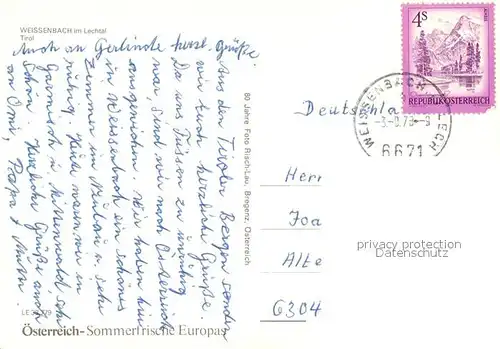 WEISSENBACH im Lechtal
Tirol
Auch an Gerlinde herzl. Grüße.
Aus den Tiroler Bergen senden
wir Euch herzliche Grüße.
Da es in Füssen zu
war, sind wir nach Österreich
ausgewichen. Wir haben hier
in Weissenbach ein schönes
Zimmer im u. sehr
ruhig. Heute waren wir in
Garmisch u. Mittenwald, sehr
schön. Herzliche Grüße auch
an Omi, Papa + Mutti.
LE
Österreich-Sommerfrische Europas
80 Jahre Foto Risch-Lau, Bregenz, Österreich
4S
REPUBLIK ÖSTERREICH
WEISSENBACH LECH
6671
Deutschla
Herr
Alte
6304
privacy protection
Datenschutz